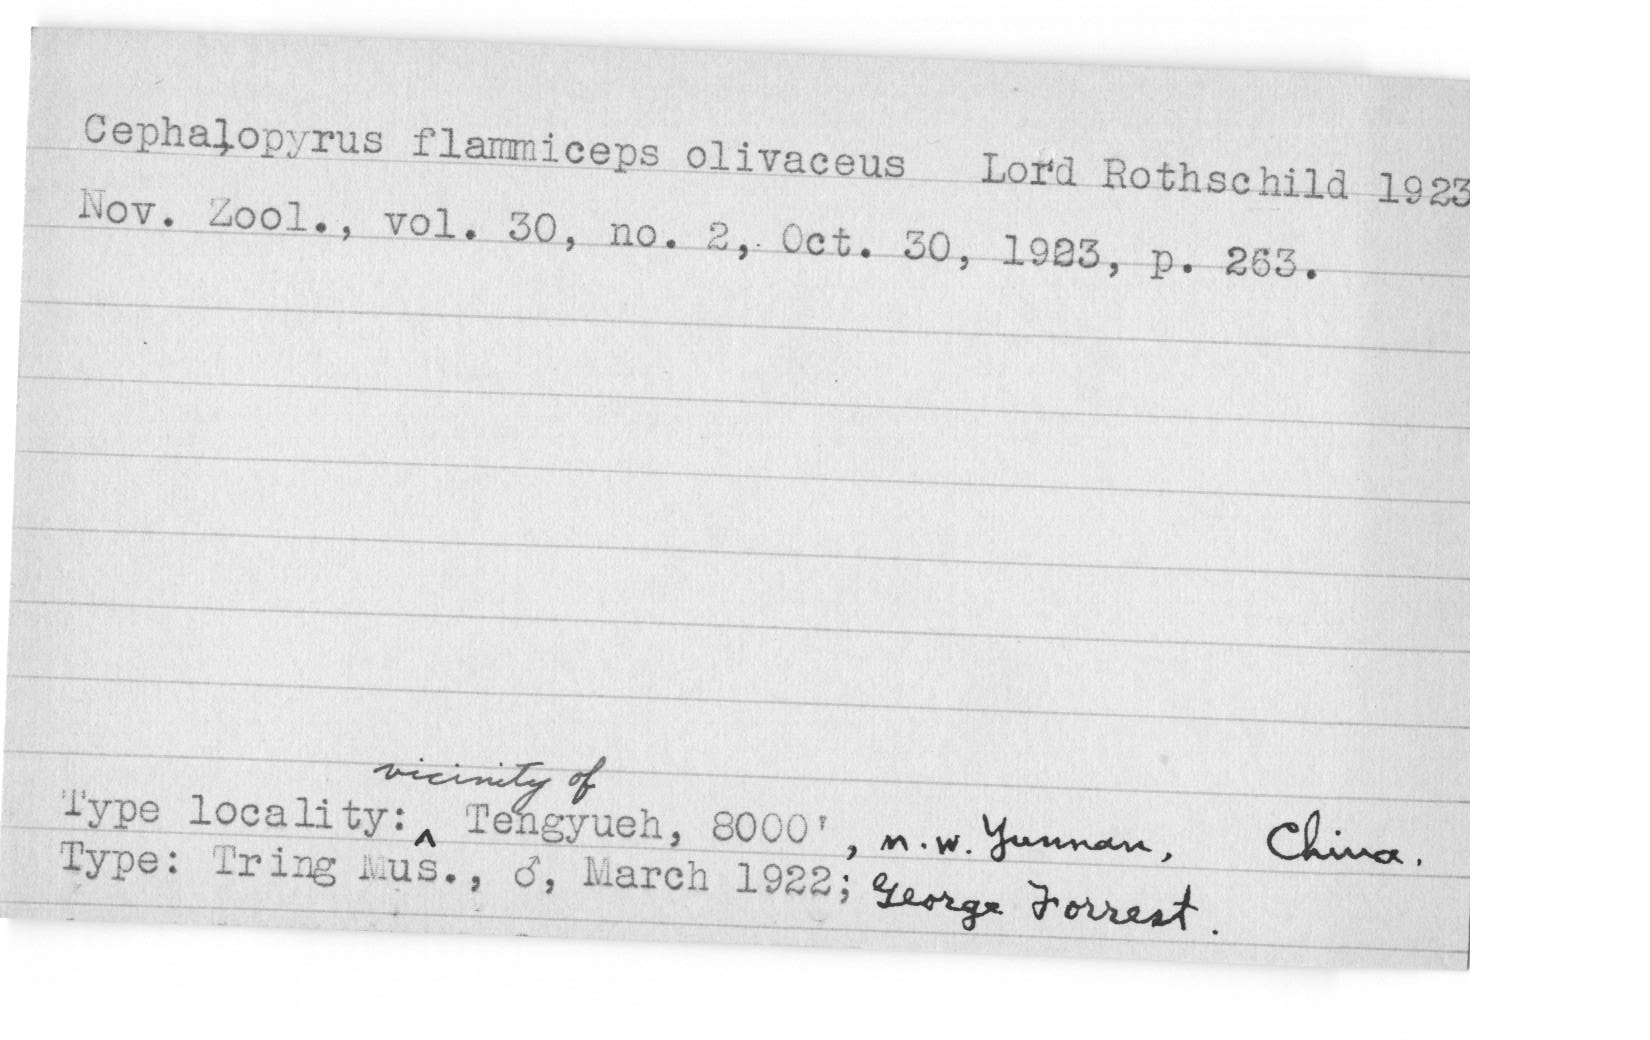 Cephalopyrus flammiceps olivaceus Lord Rothschild 1923
Nov. Zool., vol. 30, no. 2, Oct. 30, 1923, p. 263.
vicinity of
Type locality:‸ Tengyueh, 8000', n.w. Yunnan, China.
Type: Tring Mus., ♂, March 1922; George Forrest.